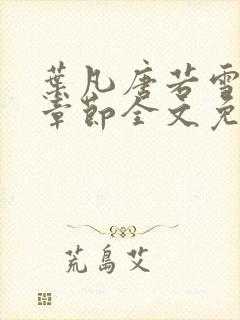 葉凡唐若雪
章節全文免
荒島艾